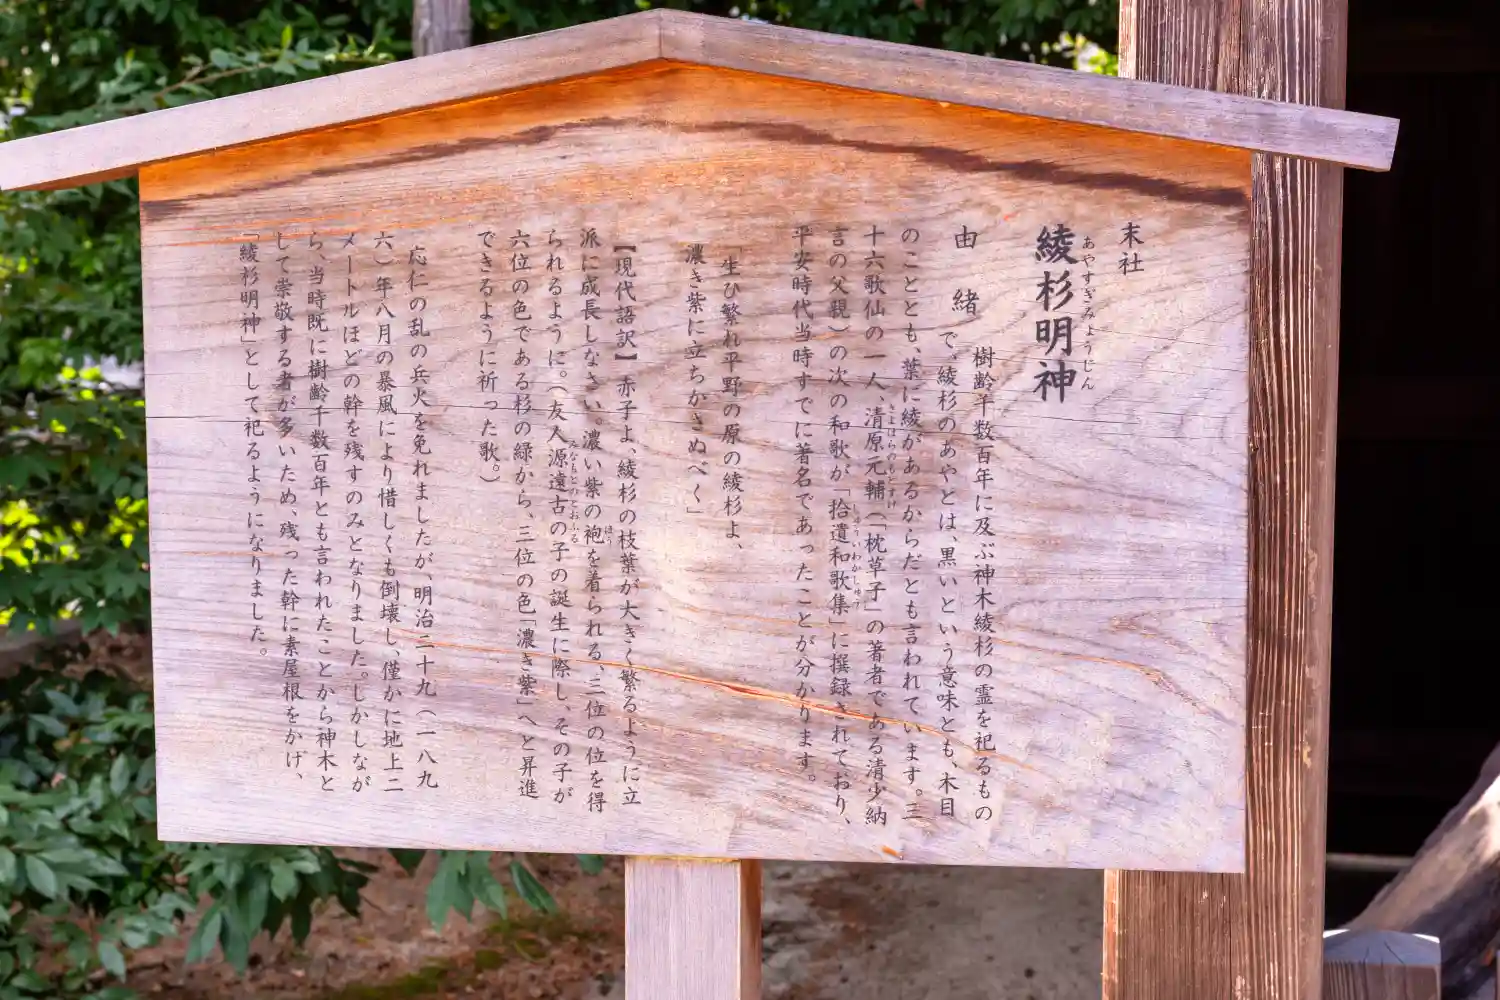 末社
綾杉明神
あやすぎみょうじん
由緒
樹齢千数百年に及ぶ神木綾杉の霊を祀るもの
で、綾杉のあやとは、黒いという意味とも、木目
のこととも、葉に綾があるからだとも言われています。三
十六歌仙の一人、清原元輔（「枕草子」の著者である清少納
きよはらのもとすけ
言の父親）の次の和歌が「拾遺和歌集」に撰録されており、
しゅういわかしゅう
平安時代当時すでに著名であったことが分かります。
「生ひ繁れ平野の原の綾杉よ、
濃き紫に立ちかさぬべく」
【現代語訳】赤子よ、綾杉の枝葉が大きく繁るように立
派に成長しなさい。濃い紫の袍を着られる、三位の位を得
ほう
られるように。（友人源遠古の子の誕生に際し、その子が
みなもとのとおふる
六位の色である杉の緑から、三位の色「濃き紫」へと昇進
できるように祈った歌。）
応仁の乱の兵火を免れましたが、明治二十九（一八九
六）年八月の暴風により惜しくも倒壊し、僅かに地上二
メートルほどの幹を残すのみとなりました。しかしなが
ら、当時既に樹齢千数百年とも言われたことから神木と
して崇敬する者が多いため、残った幹に素屋根をかけ、
「綾杉明神」として祀るようになりました。